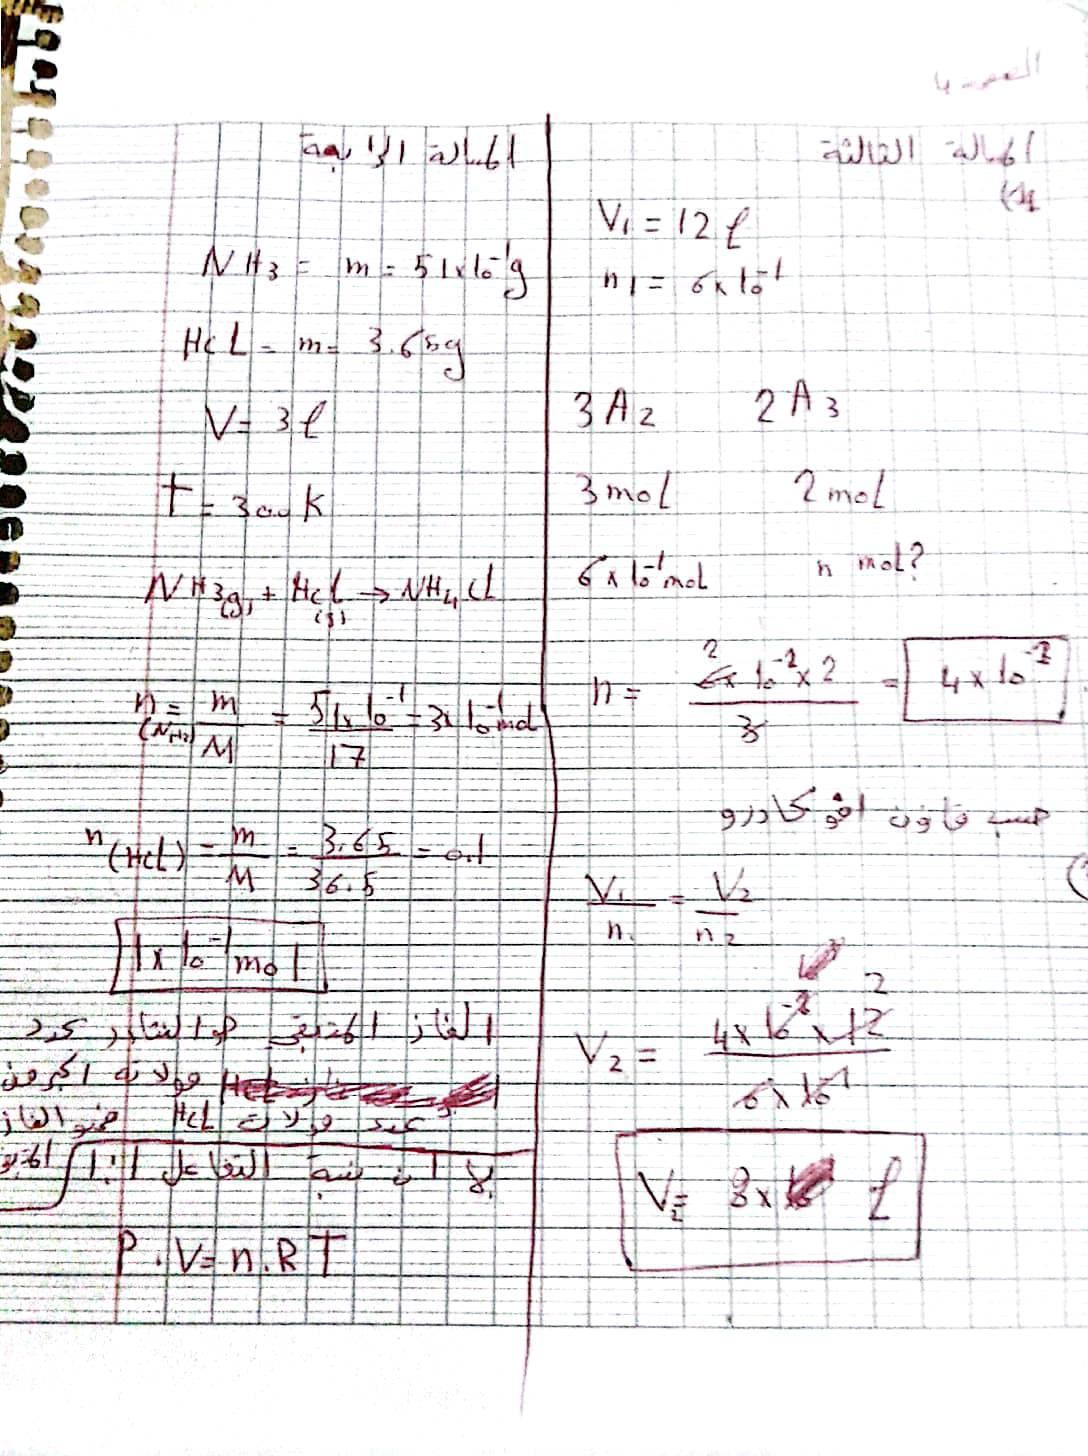 المسألة الثالثة
V₁ = 12 l
n₁ = 6x10⁻¹
3A₂ 2A₃
3mol 2mol
6x10⁻¹mol n mol?
n = 6x10⁻¹x2 / 3 = 4x10⁻¹
حسب قانون افوكادرو
V₁/n₁ = V₂/n₂
V₂ = 4x10⁻¹x12 / 6x10⁻¹
V₂ = 8 l
المسألة الرابعة
NH₃ = m = 51x10⁻¹g
HCL = m = 3.65g
V = 3l
T = 300 K
NH₃(g) + HCl(g) → NH₄Cl
n(NH₃) = m/M = 51x10⁻¹/17 = 3x10⁻¹mol
n(HCL) = m/M = 3.65/36.5 = 0.1
1x10⁻¹mol
الغاز المتبقي هو النشادر عدد
مولاته اكبر من
عدد مولات HCL فهو الغاز
لا ن نسبة التفاعل 1:1
P.V = n.R T